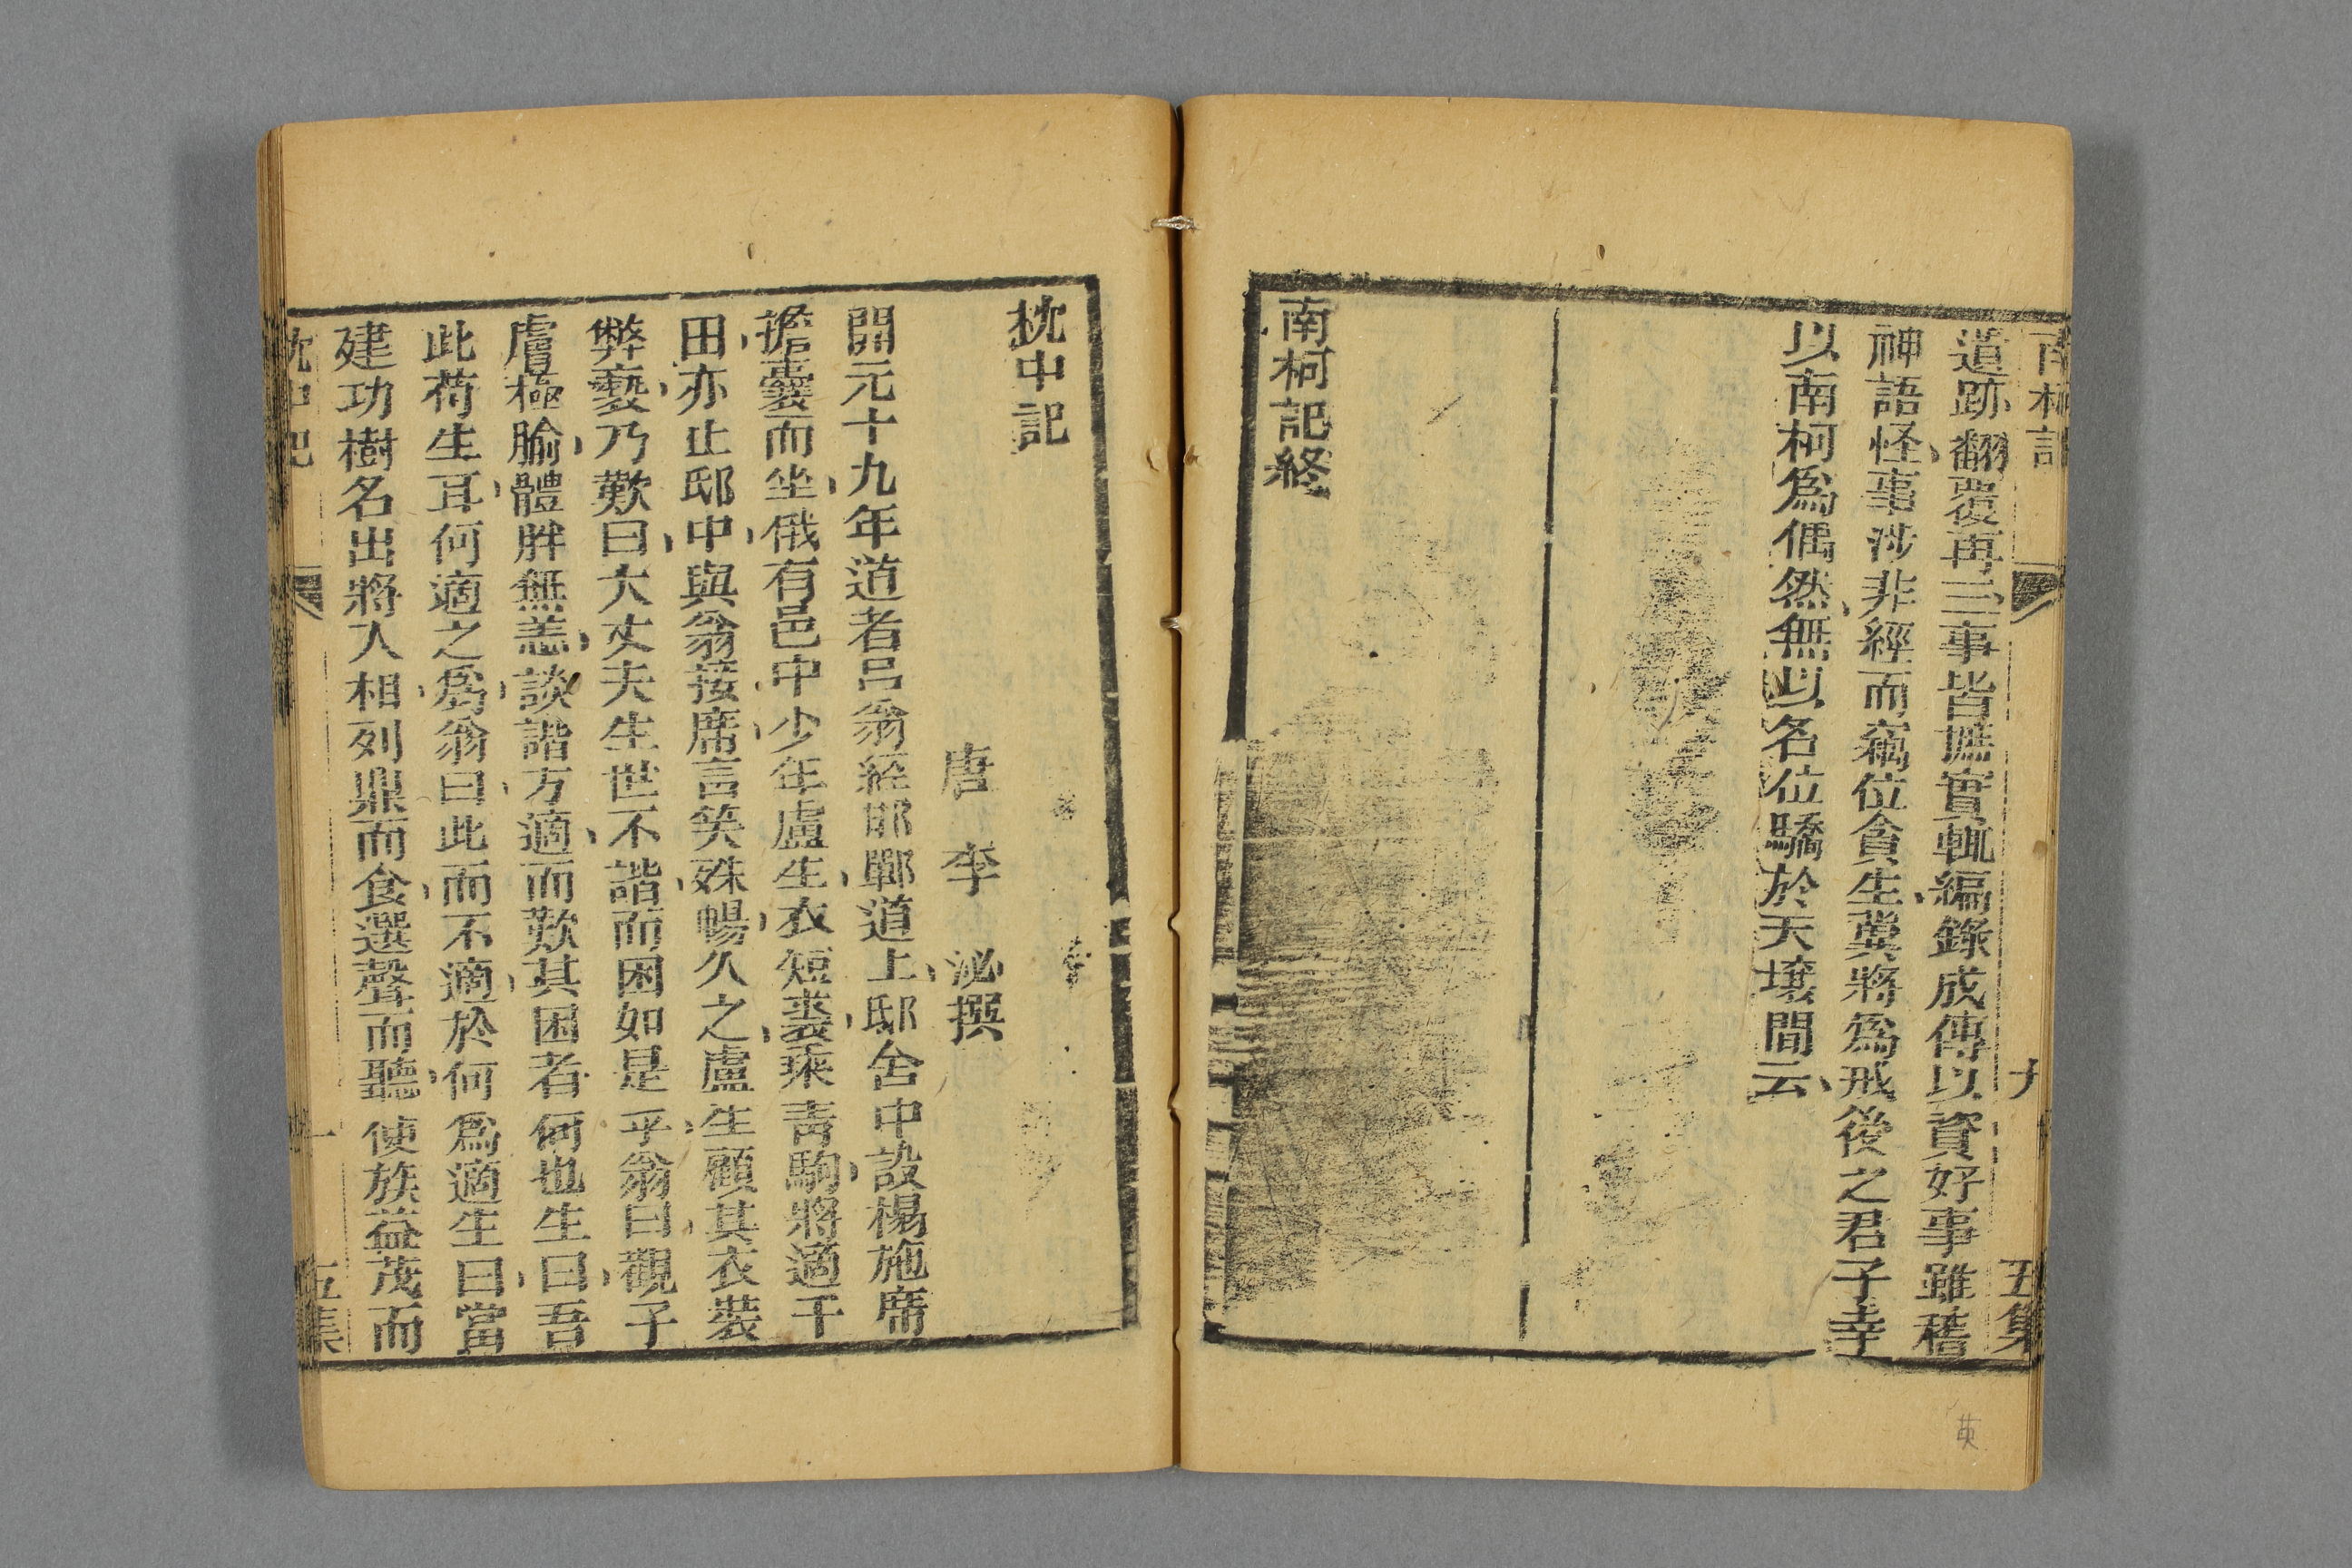 南柯記
九
五集
道跡翻覆再三事皆摭實輒編錄成傳以資好事雖稽
神語怪事涉非經而竊位貪生冀將爲戒後之君子幸
以南柯爲偶然無以名位驕於天壤間云
南柯記終
枕中記
唐李泌撰
開元十九年道者呂翁経邯鄲道上邸舍中設榻施席
擔囊而坐俄有邑中少年盧生衣短裘乘青駒將適于
田亦止邸中與翁接席言笑殊暢久之盧生顧其衣裝
弊褻乃歎曰大丈夫生世不諧而困如是乎翁曰觀子
膚極腧體胖無恙談諧方適而歎其困者何也生曰吾
此苟生耳何適之爲翁曰此而不適於何爲適生曰當
建功樹名出將入相列鼎而食選聲而聽使族益茂而
枕中記
一
五集